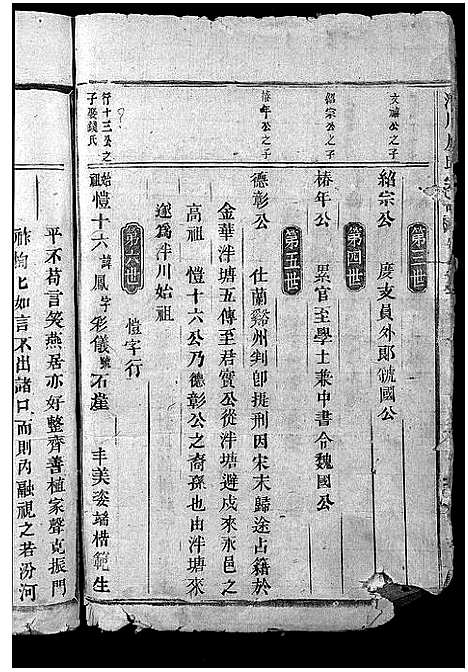 第三世
文諴公之子
紹宗公　度支員外郎虢國公
第四世
紹宗公之子
椿年公　累官至學士兼中書令魏國公
第五世
椿年公之子
德彰公　仕蘭谿州判卽提刑因宋末歸途占籍於
金華泮塘五傳至君實公從泮塘避戍來永邑之
高祖　愷十六公乃德彰公之裔孫也由泮塘來
遂爲泮川始祖
第六世
愷字行
行十三公之
子娶錢氏
始祖愷十六諱鳳字彩儀號石崖　丰美姿端楷範生
平不苟言笑燕居亦好整齊善植家聲克振門
祚恂匕如言不出諸口而則內融視之若汾河